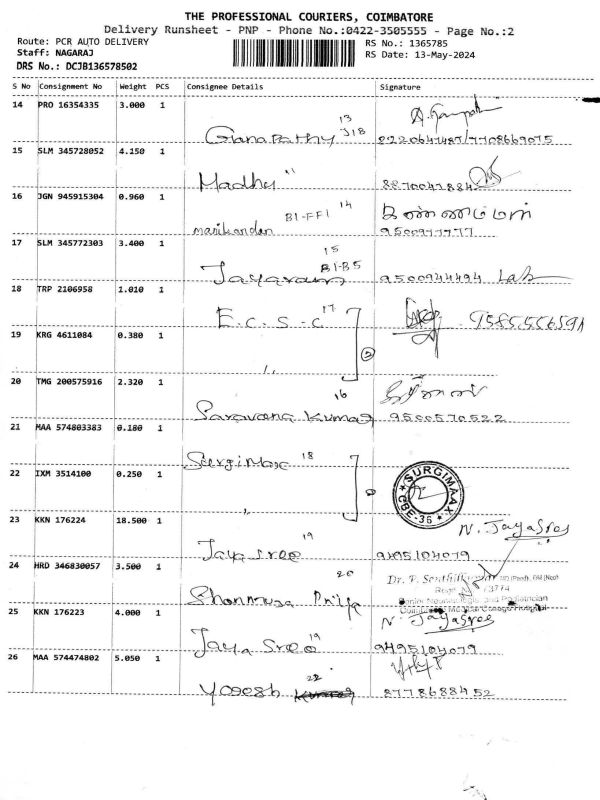 THE PROFESSIONAL COURIERS, COIMBATORE
Delivery Runsheet - PNP - Phone No.:0422-3505555 - Page No.:2
Route: PCR AUTO DELIVERY RS No.: 1365785
Staff: NAGARAJ RS Date: 13-May-2024
DRS No.: DCJB136578502
S No Consignment No Weight PCS Consignee Details Signature
14 PRO 16354335 3.000 1
13
J1B
GanaPathy
15 SLM 345728052 4.150 1
11
Madhu 8870041884
16 JGN 945915304 0.960 1
B1-FF1 14
manikandan 9500977777
17 SLM 345772303 3.400 1
15
B1-B5
Jayaram 9500944494 Lab
18 TRP 2106958 1.010 1
E.C.S.C 17
19 KRG 4611084 0.380 1
,, 2
20 TMG 200575916 2.320 1
16
Saravana Kumar 9500570522
21 MAA 574803383 0.180 1
Surgimax 18
22 IXM 3514100 0.250 1
,,
SURGIMAAX
CBE-36
23 KKN 176224 18.500 1
N. JayaSree
19
Jaya Sree 9495104079
24 HRD 346830057 3.500 1
20
Shanmuga Priya
25 KKN 176223 4.000 1
N. JayaSree
19
Jaya Sree 9495104079
26 MAA 574474802 5.050 1
22
Yogesh 8778688452